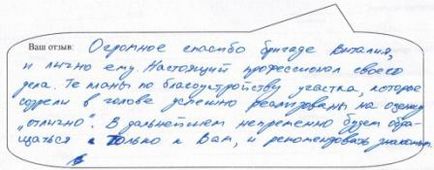 Ваш отзыв: Огромное спасибо бригаде Виталия,
и лично ему. Настоящий профессионал своего
дела. Те планы по благоустройству участка, которое
созрели в голове успешно реализованы на оценку
"отлично". В дальнейшем непременно будем обра-
щаться только к Вам, и рекомендовать знакомым.